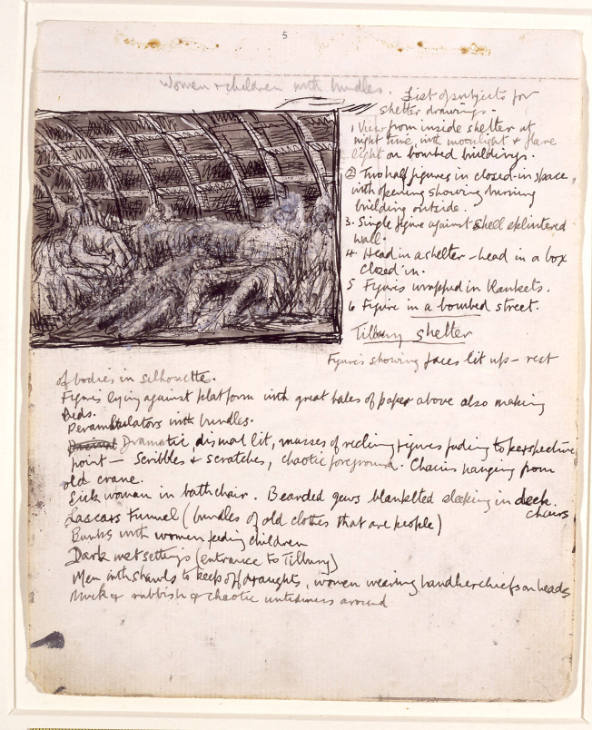 5
Women & children with bundles.
List of subjects for
shelter drawings.
1 View from inside shelter at
night time, with moonlight & flare
light on bombed buildings.
2 Two half figures in closed-in space,
with opening showing burning
building outside.
3. Single figure against shell splintered
wall.
4 Head in a shelter – head in a box
closed in.
5 Figures wrapped in blankets.
6 Figure in a bombed street.
Tilbury shelter
Figures showing faces lit up – rest
of bodies in silhouette.
Figures lying against platform with great bales of paper above also making
beds.
Perambulators with bundles.
Dramatic, dismal lit, masses of reclining figures fading to perspective
point – Scribbles & scratches, chaotic foreground. Chains hanging from
old crane.
Sick woman in bathchair. Bearded jews blanketed sleeping in deck
chairs
Lascars Tunnel (bundles of old clothes that are people)
Bunks with women feeding children
Dark wet settings (entrance to Tilbury)
Men with shawls to keep off draughts, women wearing handkerchiefs on heads
Muck & rubbish & chaotic untidiness around